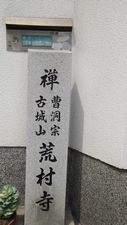 禅
曹洞宗
古城山
荒村寺